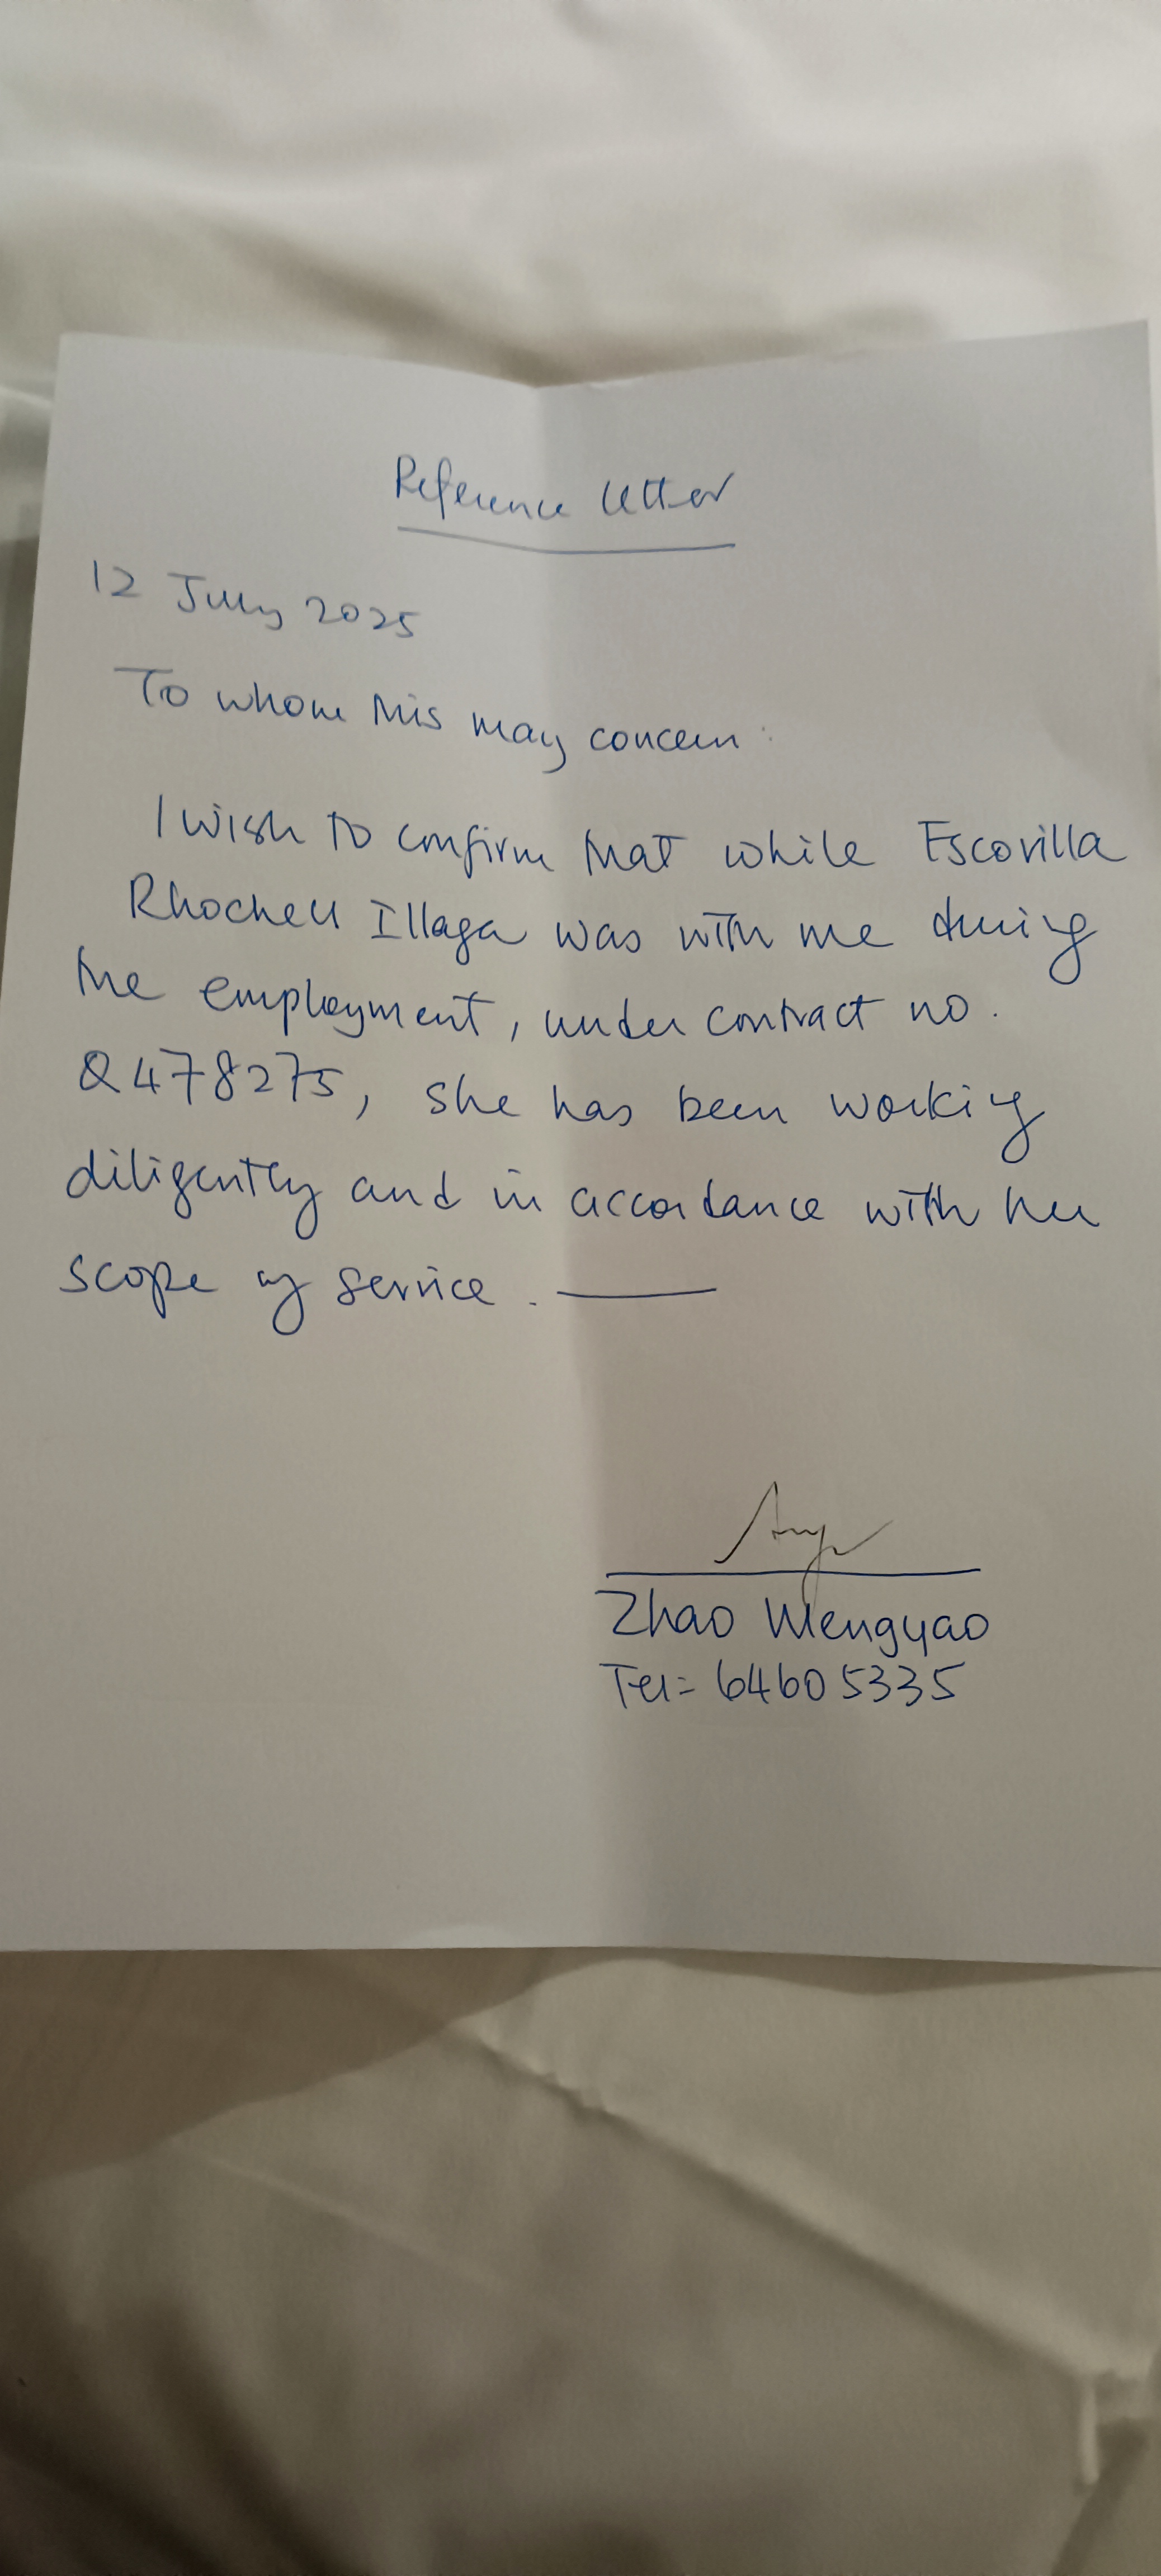 Reference letter
12 July 2025
To whom this may concern:
I wish to confirm that while Escorilla
Rhochell Illaga was with me during
the employment, under contract no.
Q478275, she has been working
diligently and in accordance with her
scope of service.
Zhao Mengyao
Tel= 64605335